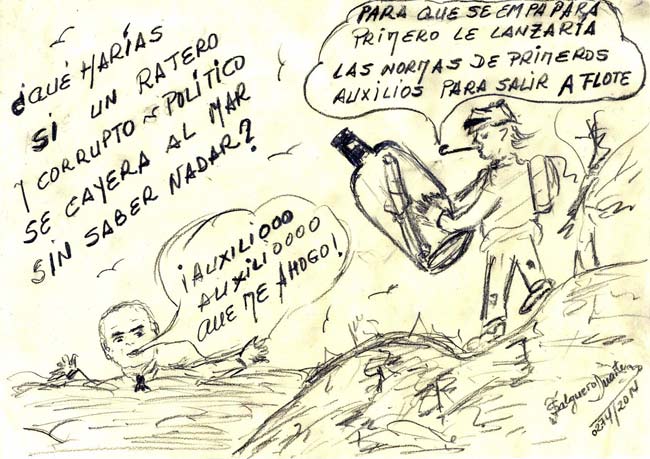 ¿QUÉ HARÍAS
SI UN RATERO
Y CORRUPTO ~ POLÍTICO
SE CAYERA AL MAR
SIN SABER NADAR?
PARA QUE SE EMPAPARA
PRIMERO LE LANZARÍA
LAS NORMAS DE PRIMEROS
AUXILIOS PARA SALIR A FLOTE
¡AUXILIOOO
AUXILIOOOO
QUE ME AHOGO!